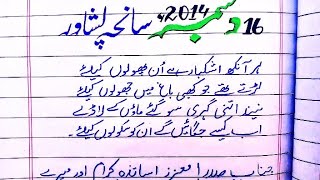 16 دسمبر 2014ء سانحہ پشاور
ہر آنکھ اشکبار ہے اُن پھولوں کیلئے
لوٹتے تھے جو کبھی باغ میں جھولوں کیلئے
نیند اتنی گہری سو گئے ماؤں کے لاڈلے
اب کیسے جگائیں گے ان کو سکولوں کیلئے
جناب صدر! معزز اساتذہ کرام اور میرے